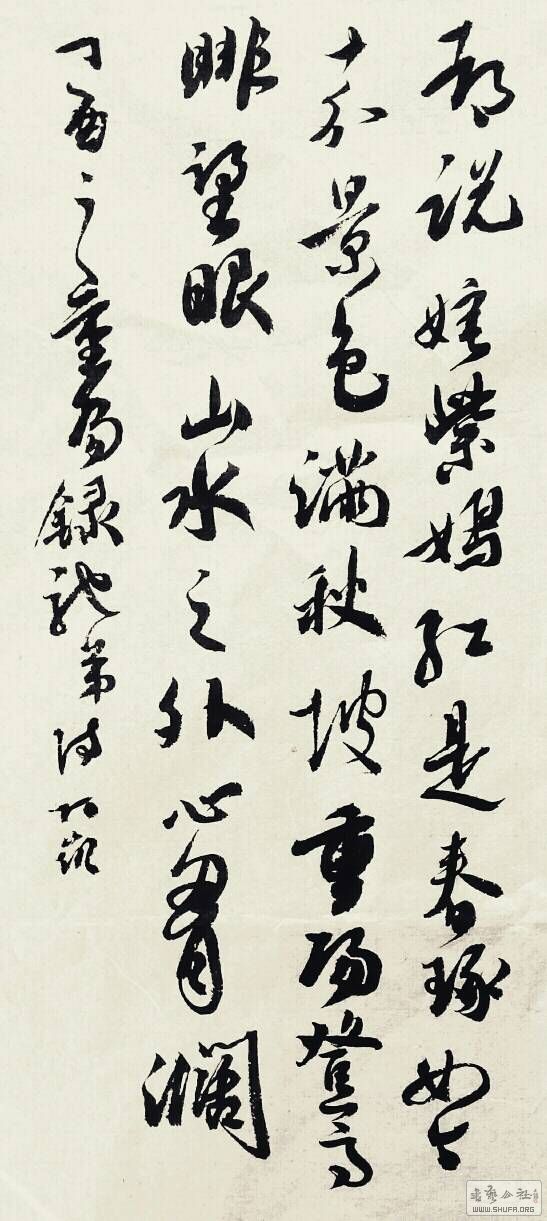 都说姹紫嫣红是春琢如今
十分景色满秋坡重阳登高
眺望眼山水之外心胸濶
丁酉之重阳録弟诗
WWW.SHUFA.ORG